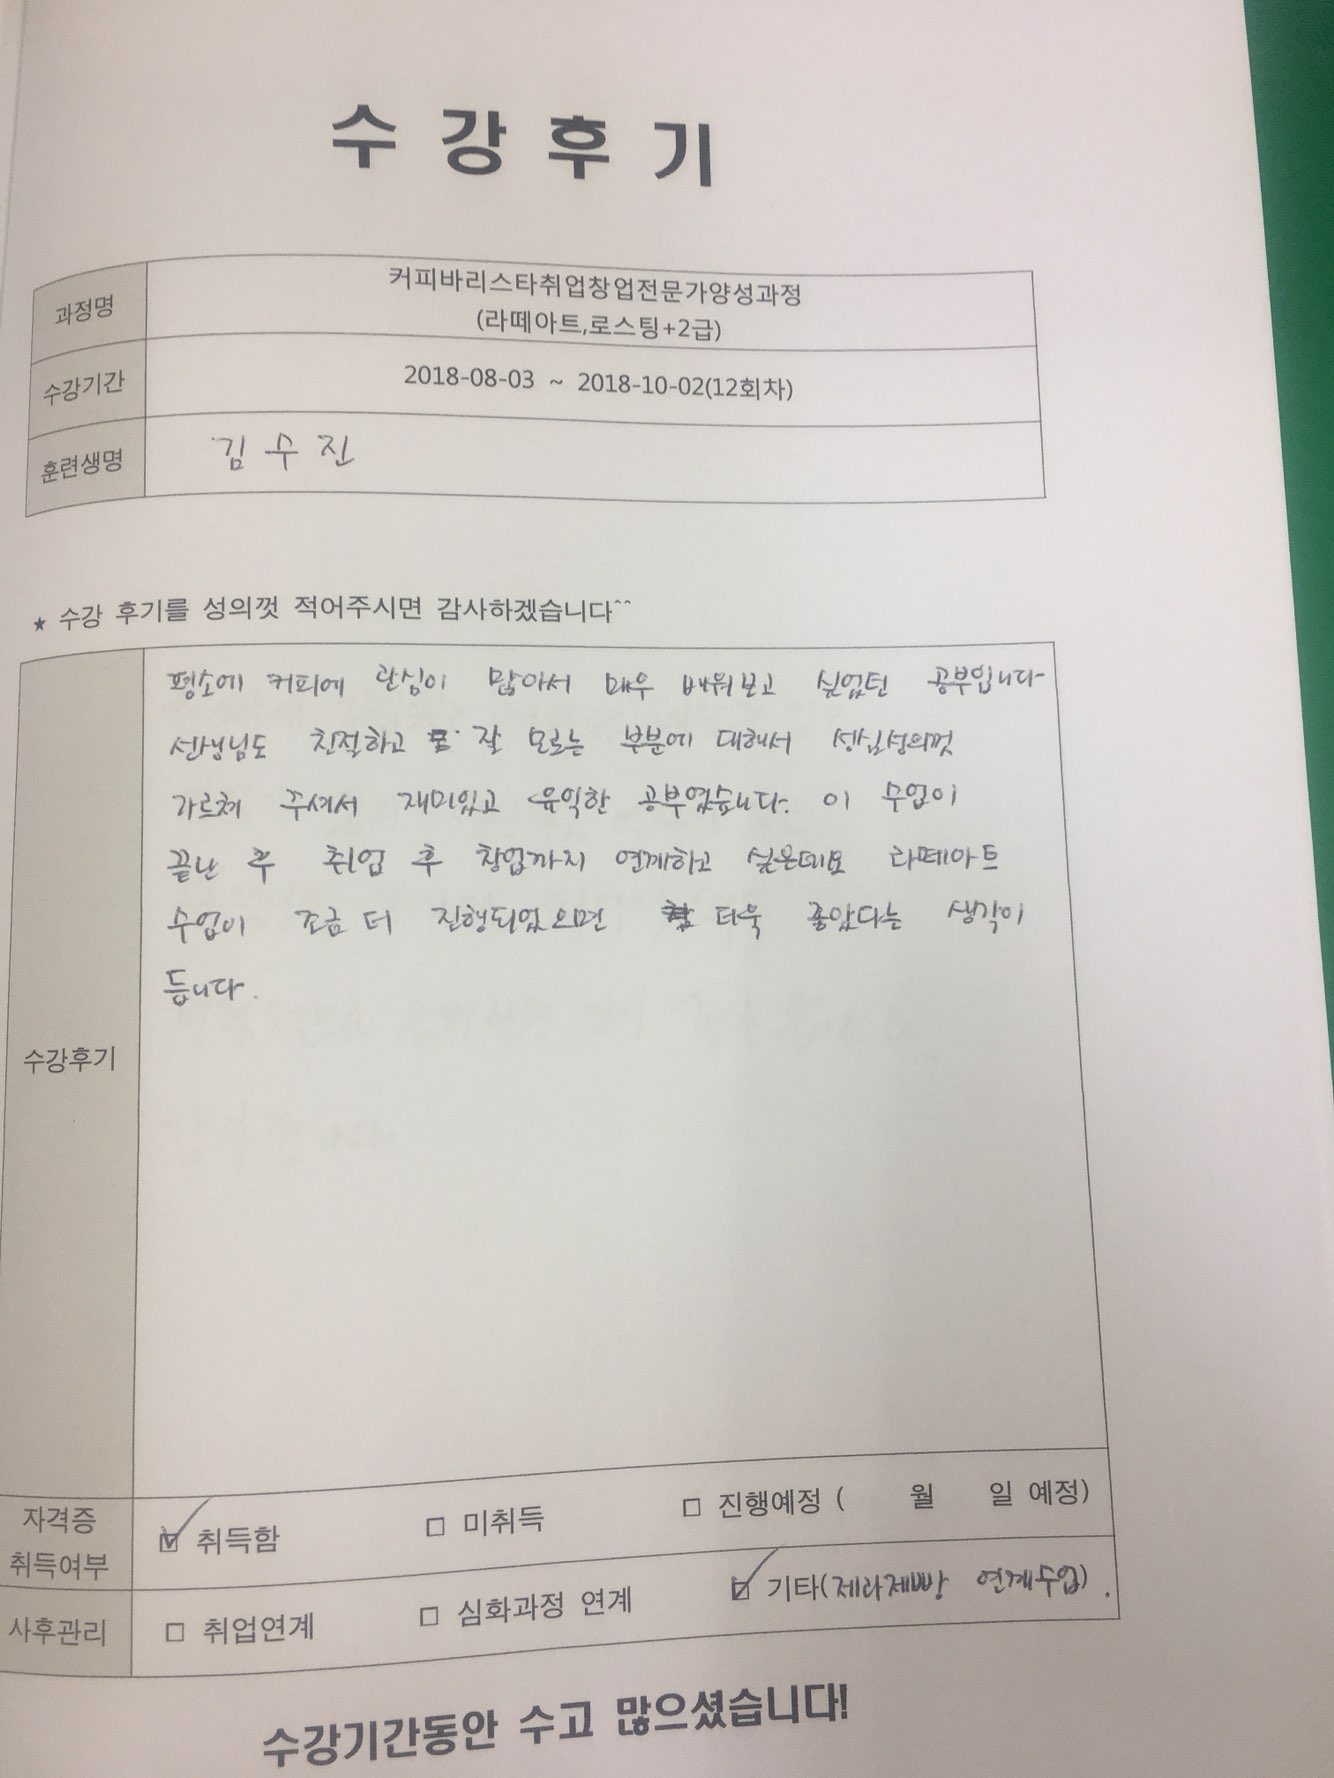 수 강 후 기
과정명
커피바리스타취업창업전문가양성과정
(라떼아트,로스팅+2급)
수강기간
2018-08-03 ~ 2018-10-02(12회차)
훈련생명
김 수 진
★ 수강 후기를 성의껏 적어주시면 감사하겠습니다^^
평소에 커피에 관심이 많아서 매우 배워보고 싶었던 공부입니다
선생님도 친절하고 잘 모르는 부분에 대해서 성심성의껏
가르쳐 주셔서 재미있고 유익한 공부였습니다. 이 수업이
끝난 후 취업 후 창업까지 연계하고 싶은데요 라떼아트
수업이 조금 더 진행되었으면 더욱 좋았다는 생각이
듭니다.
수강후기
자격증
취득여부
☑ 취득함 □ 미취득 □ 진행예정 ( 월 일 예정)
사후관리
□ 취업연계 □ 심화과정 연계 ☑ 기타(제과제빵 연계수업).
수강기간동안 수고 많으셨습니다!